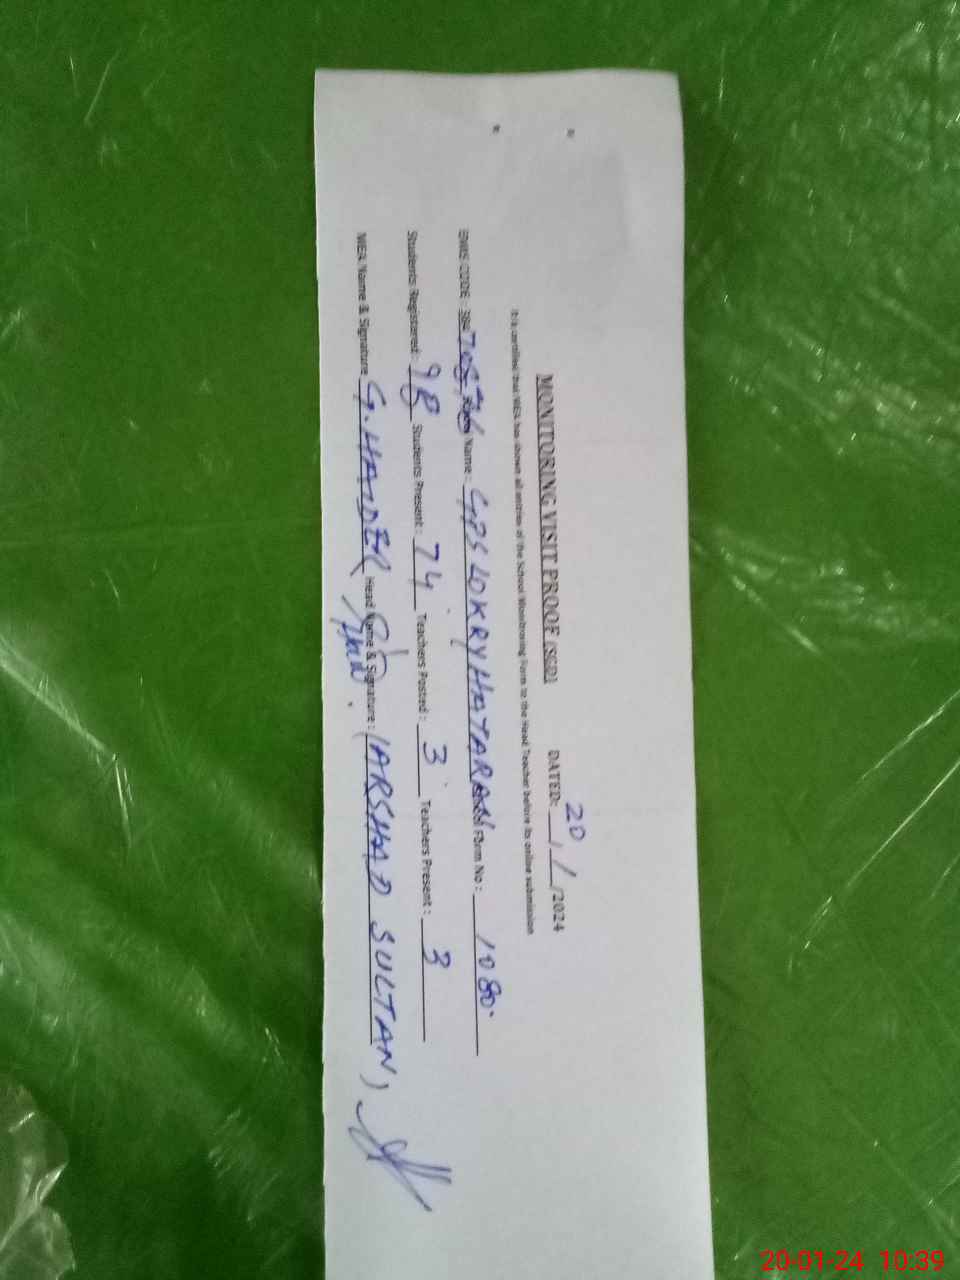 MONITORING VISIT PROOF (SGD) DATED: 20/1/2024
It is certified that MEA has shown all entries of the School Monitoring Form to the Head Teacher before its online submission
EMIS CODE: Name: GPS LOKRY HATARAN Form No: 1080
Students Registered: 98 Students Present: 74 Teachers Posted: 3 Teachers Present: 3
MEA Name & Signature G. HAIDER Head Name & Signature: (ARSHAD SULTAN)
20-01-24 10:39